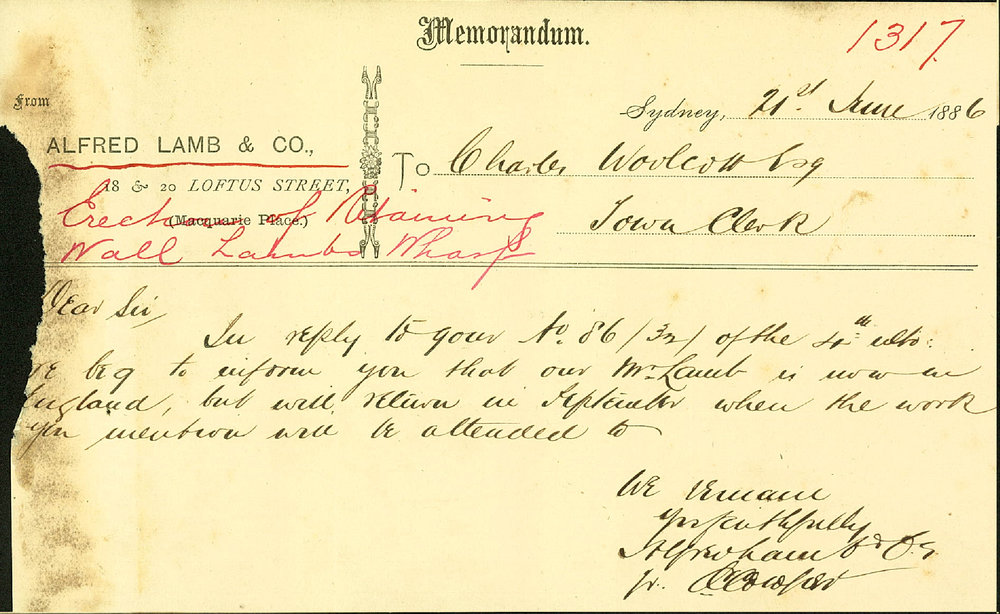 Memorandum.
1317.
From
Sydney, 21st June 1886
ALFRED LAMB & CO.,
18 & 20 LOFTUS STREET,
(Macquarie Place.)
To Charles Woolcott Esq
Town Clerk
Erection of Retaining
Wall Lambs Wharf
Dear Sir,
In reply to your No. 86/32/ of the 4th ulto:
we beg to inform you that our Mr. Lamb is now in
England, but will return in September when the work
you mention will be attended to
We remain
yrs faithfully
Alfred Lamb & Co.